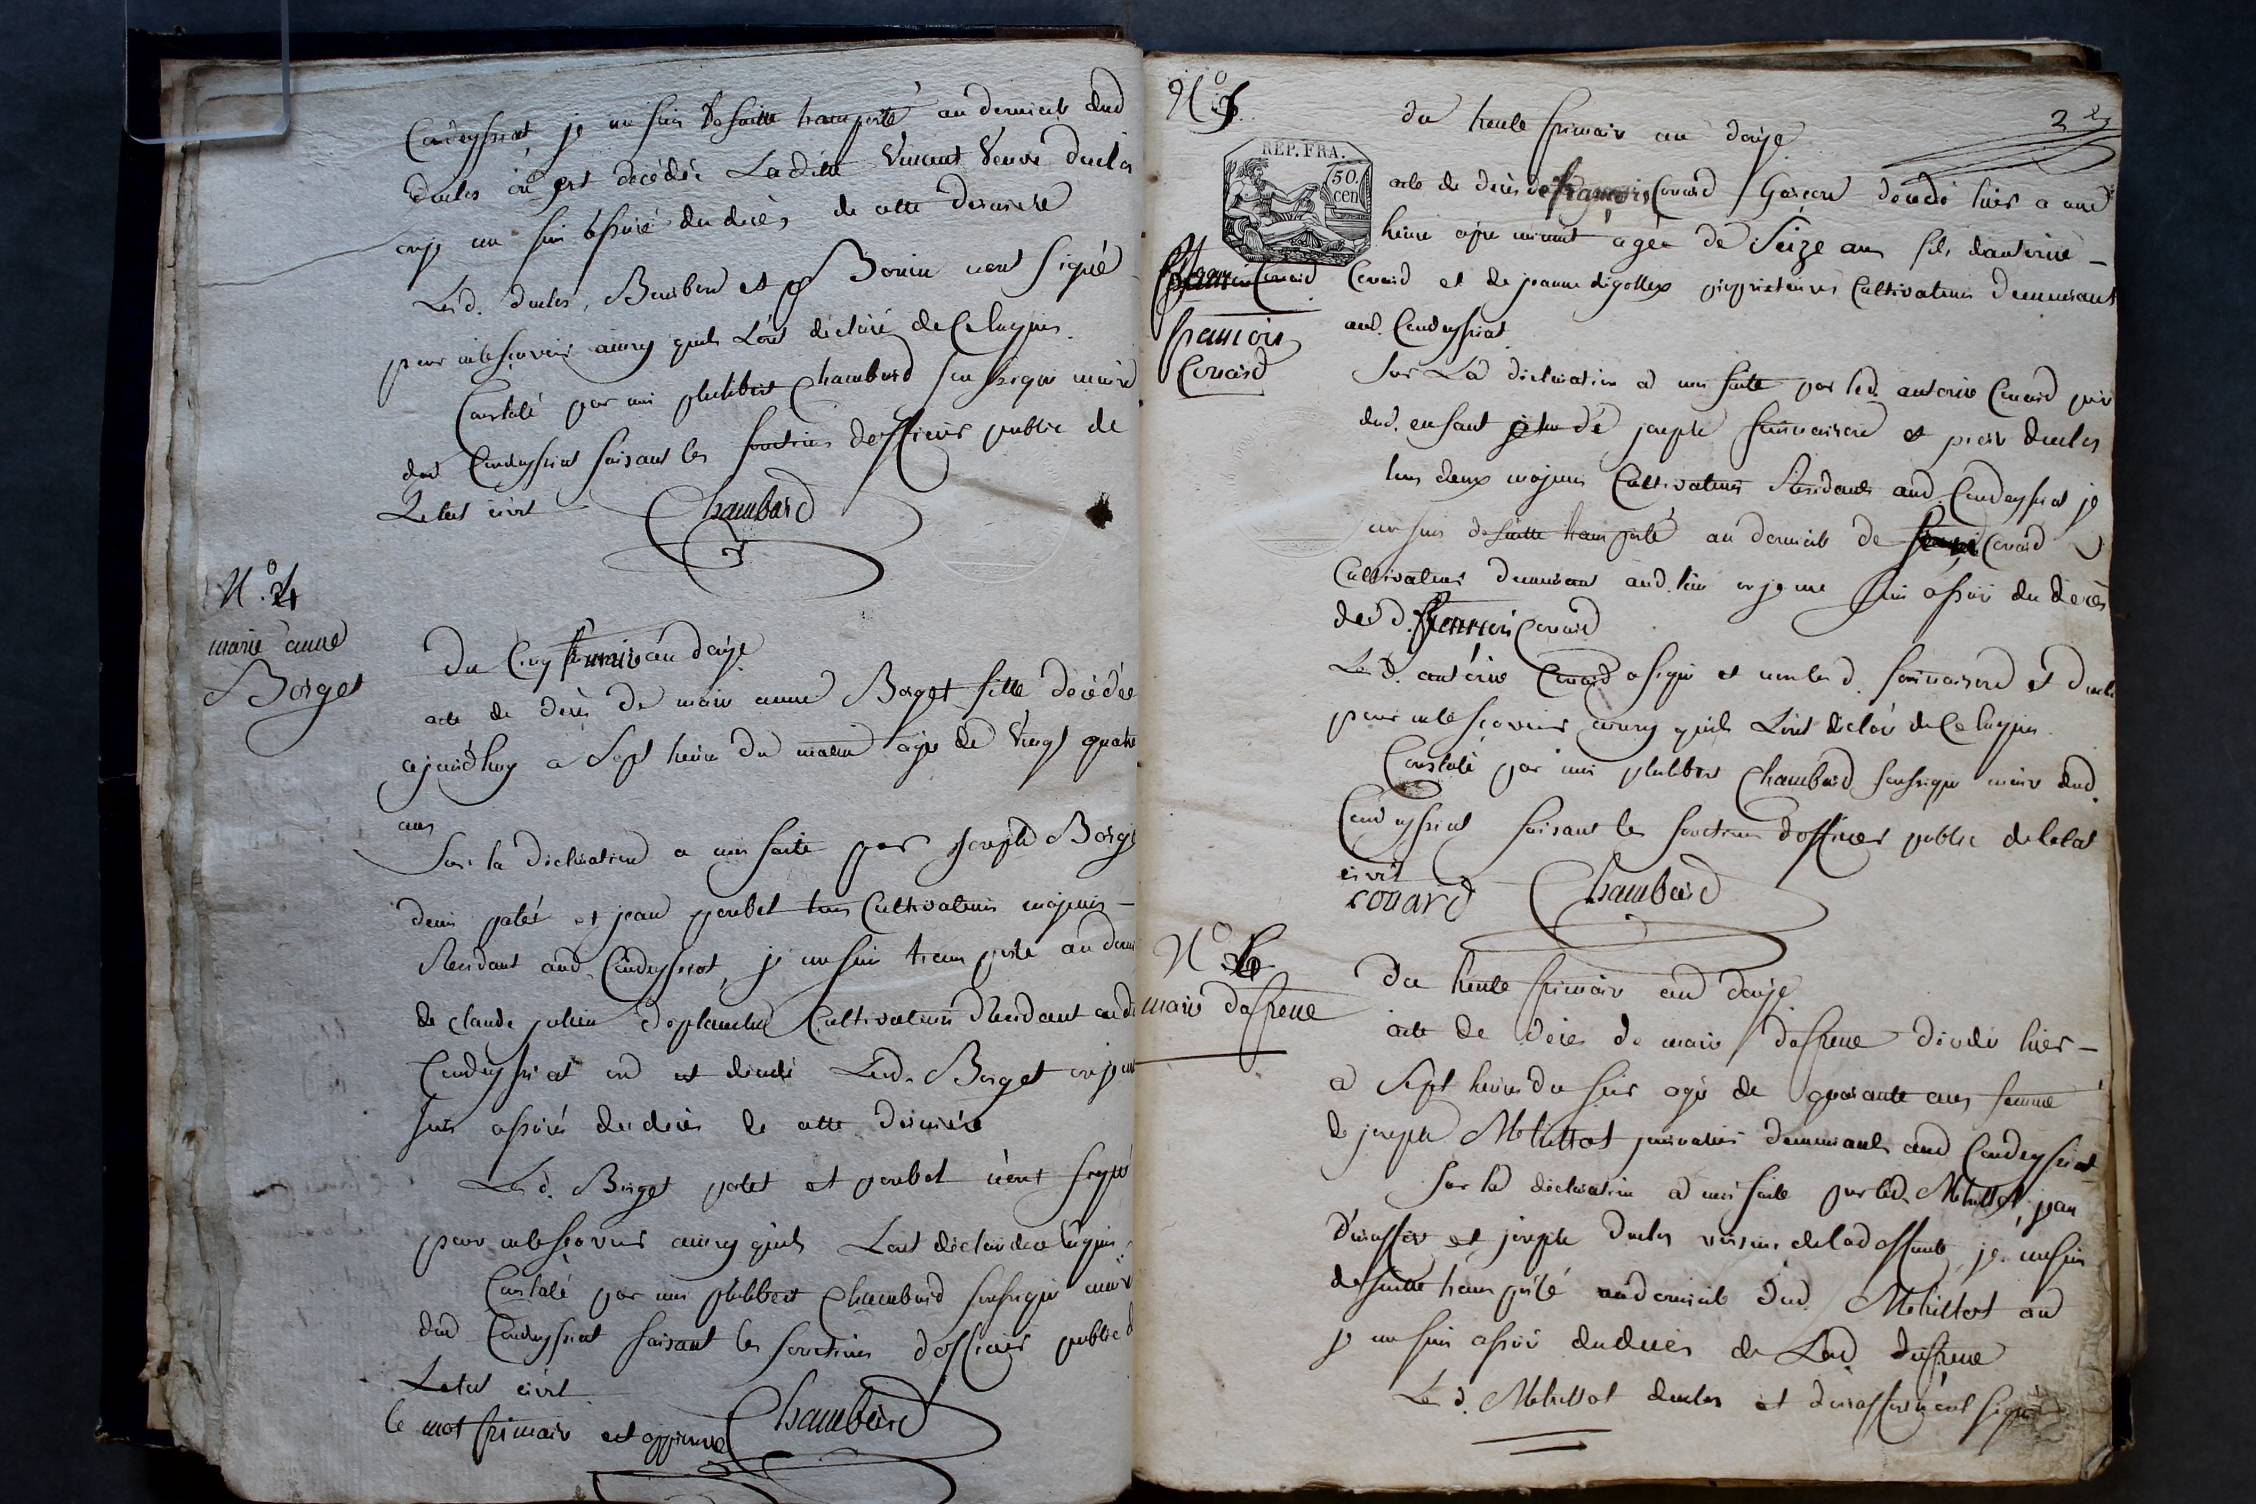 Condeyssiat, je me suis de suitte transporté au domicile dud
duclos où est décédée Ladite Vincent veuve duclos
ou je me suis assuré du décès de cette derniere
Lesd. duclos, Bombou et Bonin n'ont signé
pour ne le sçavoir ainsy quils L'ont déclaré de ce Enquis.
Constaté par moi philibert Chambard soussigné maire
dud Condeyssiat faisant les fonctions d'officier public de
Letat civil
Chambard
N.º 4
marie anne
Borget
Du Cinq frimaire an douze
acte de décès de marie anne Borget fille décédée
ajourdhuy a Sept heures du matin agée de Vingt quatre
ans
Sur la déclaration a moi faite par Joseph Borget
denis patet et jean poubet tous Cultivateurs majeurs
Residant aud. Condeyssiat, je me suis transporté au domi
de claude julien deplanche Cultivateur Residant aud
Condeyssiat ou est décédé Lad. Borget ou je me
suis assuré du décès de cette derniere
Lesd. Borget patet et poubet n'ont signé
pour ne le sçavoir ainsy quils Lont déclaré de ce Enquis.
Constaté par moi philibert Chambard soussigné maire
dud Condeyssiat faisant les fonctions d'officier public d
Letat civil
le mot frimaire est approuvé Chambard
N.º 5
2
REP. FRA.
50. cen
Du trente frimaire an douze
acte de décès de françois Couard Garçon décédé hier a une
heure apre minuit agée de Seize ans fils d'antoine
Couard
françois
Couard
Couard et de jeanne digollex proprietaires Cultivateurs demeurant
aud. Condeyssiat
Sur La déclaration a moi faite par led. antoine Couard père
dud. enfant de joseph et pierre duclos
tous deux majeurs Cultivateurs Residants aud. Condeyssiat je
me suis de suitte transporté au domicile de Couard
Cultivateur demeurant aud. lieu ou je me suis assuré du décès
dud. françois Couard
Led. antoine Couard a signé et non lesd. et duclos
pour ne le sçavoir ainsy quils L'ont déclaré de Ce Enquis.
Constaté par moi philibert Chambard soussigné maire dud.
Condeyssiat faisant les fonctions d'officier public de letat
civil
couard Chambard
N.º 6
marie dafrene
Du trente frimaire an douze
acte de décès de marie dafrene décédée hier
a Sept heures du soir agée de quarante ans femme
de joseph Metrillot journalier demeurant aud Condeyssiat
Sur la déclaration a moi faite par led. Metrillot, jean
et joseph duclos voisins de lad. je me suis
de suitte transporté au domicile dud. Metrillot ou
je me suis assuré du décès de Lad. dafrene
Led. Metrillot duclos et n'ont signé